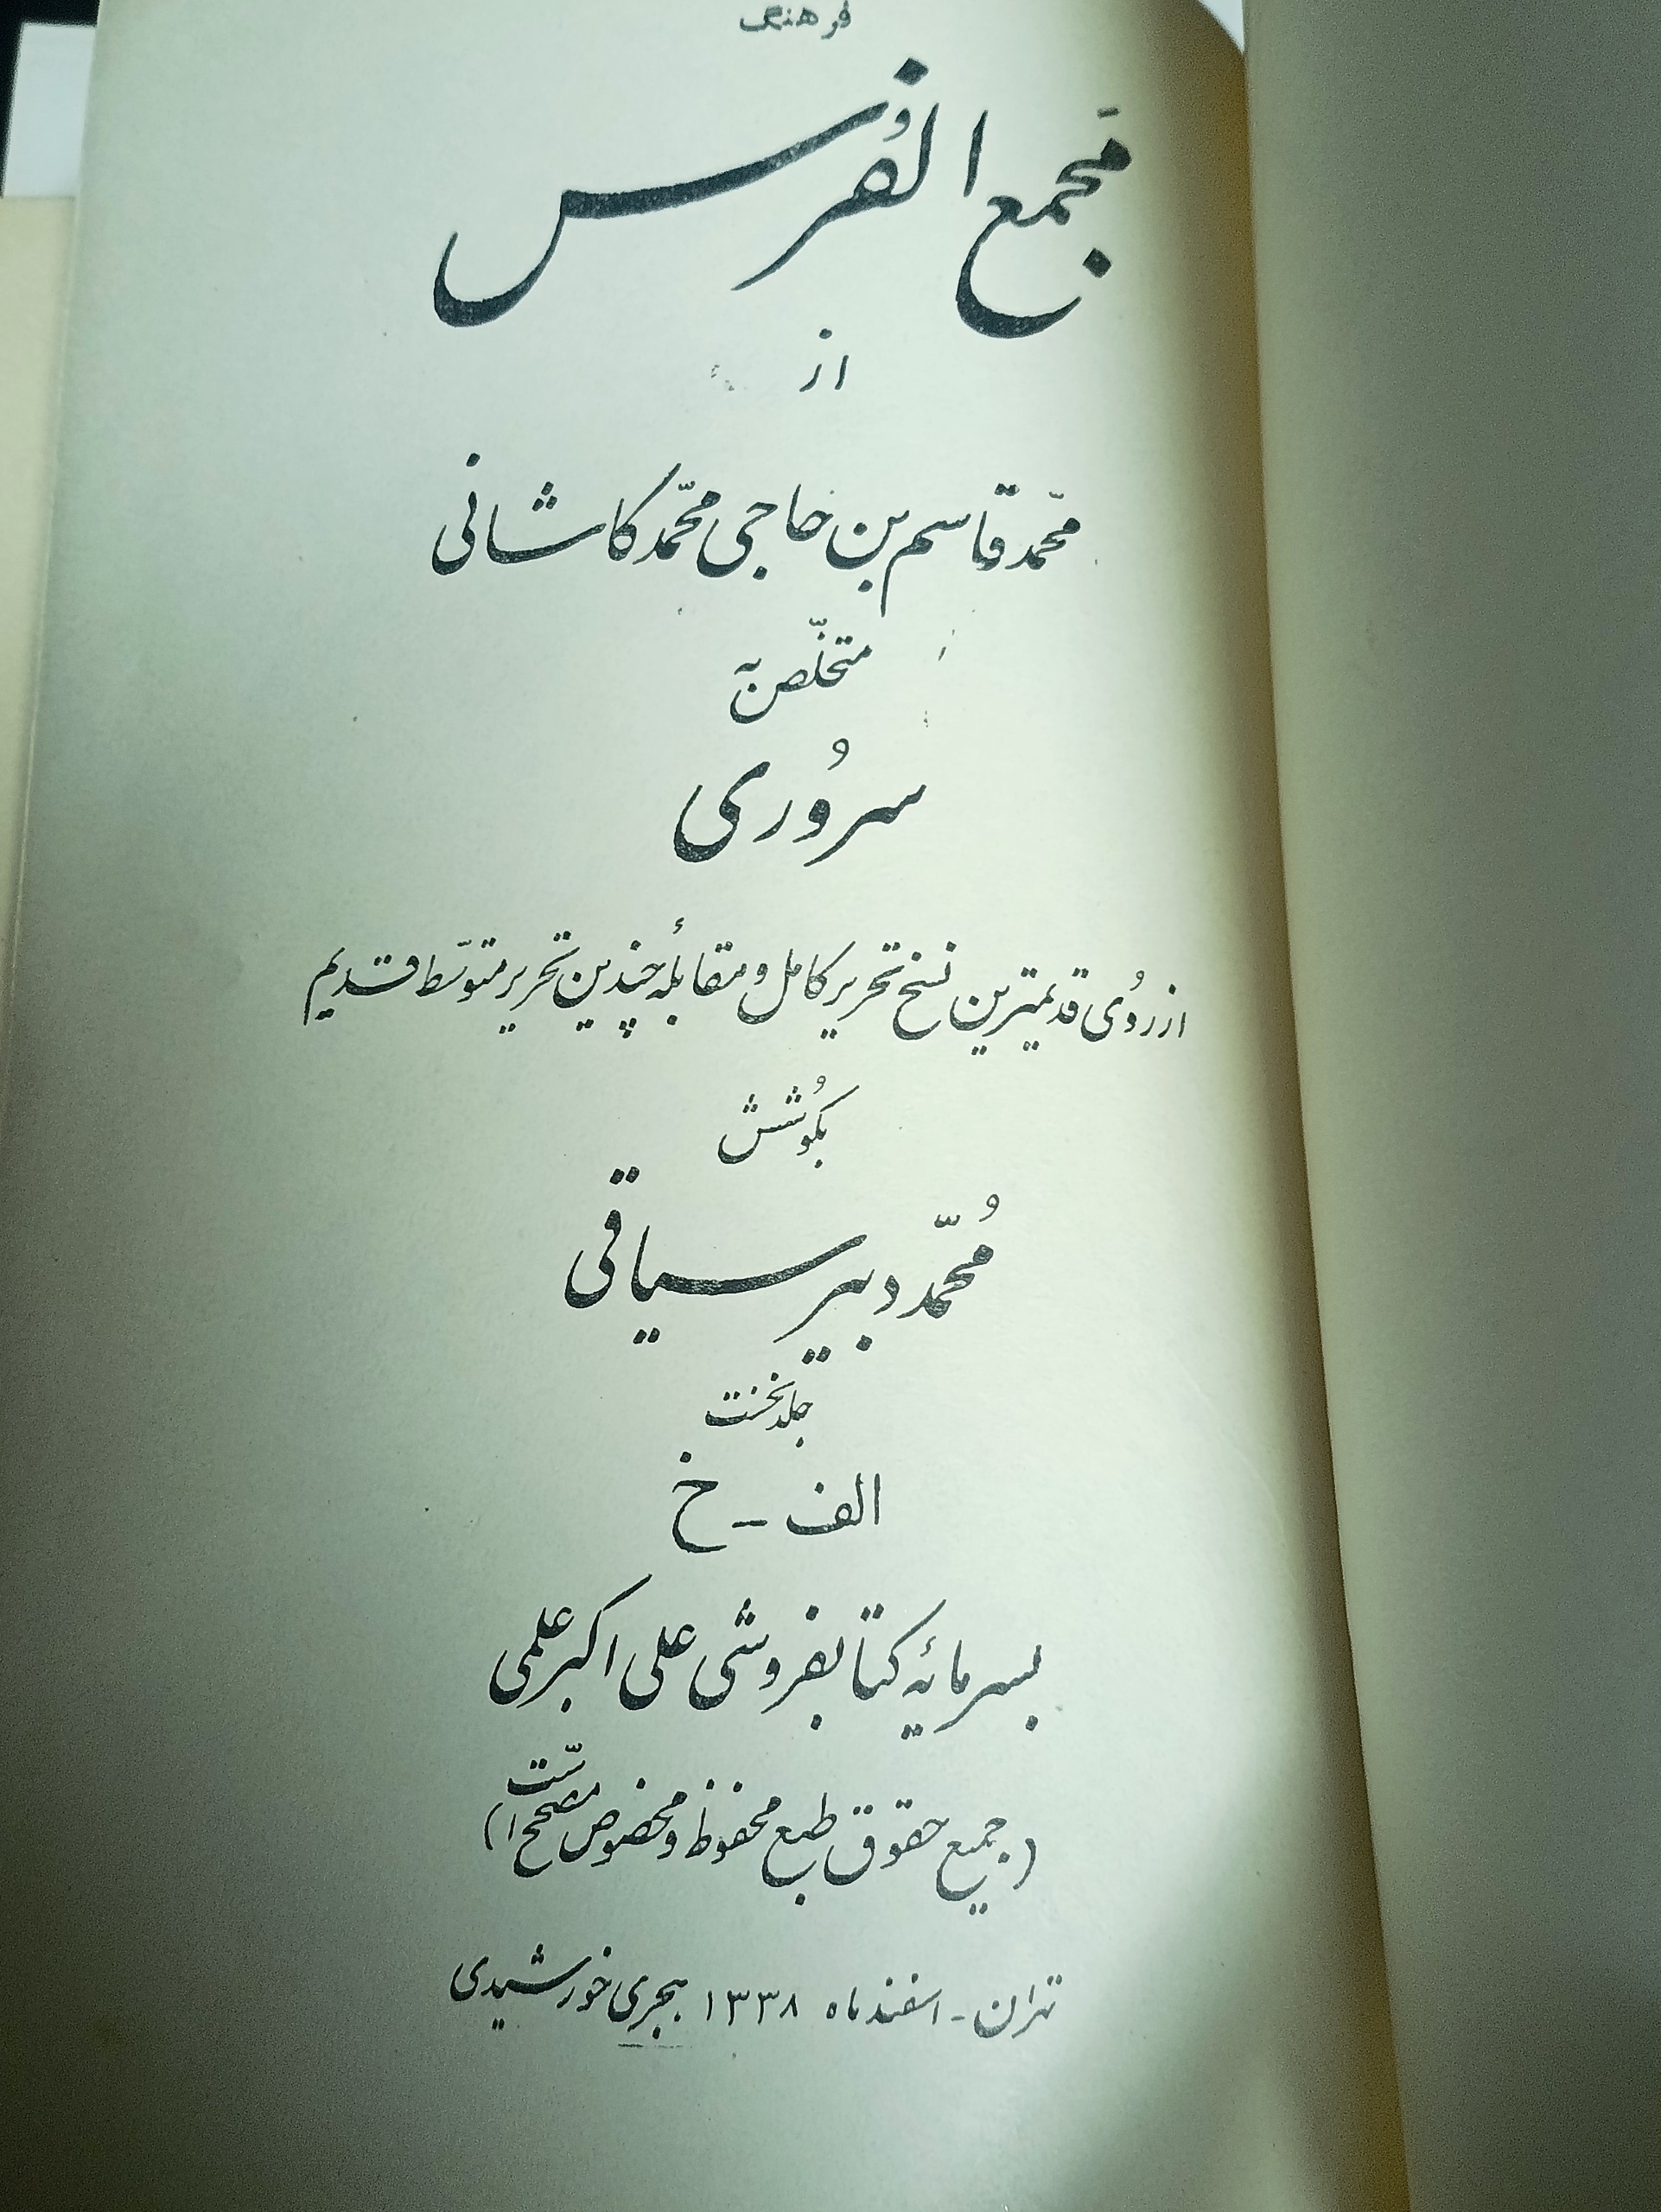 فرهنگ
مَجمع الفُرس
از
محمّد قاسم بن حاجی محمّد کاشانی
متخلّص به
سرُوری
از رُوی قدیمترین نسخ تحریر کامل و مقابلهٔ چندین تحریر متوسّط قدیم
بکُوشش
مُحمّد دبیر سیاقی
جلد نخست
الف - خ
بسرمایهٔ کتابفروشی علی اکبر علمی
(جمیع حقوق طبع محفوظ و مخصوص مصحّح است)
تهران - اسفندماه ۱۳۳۸ هجری خورشیدی